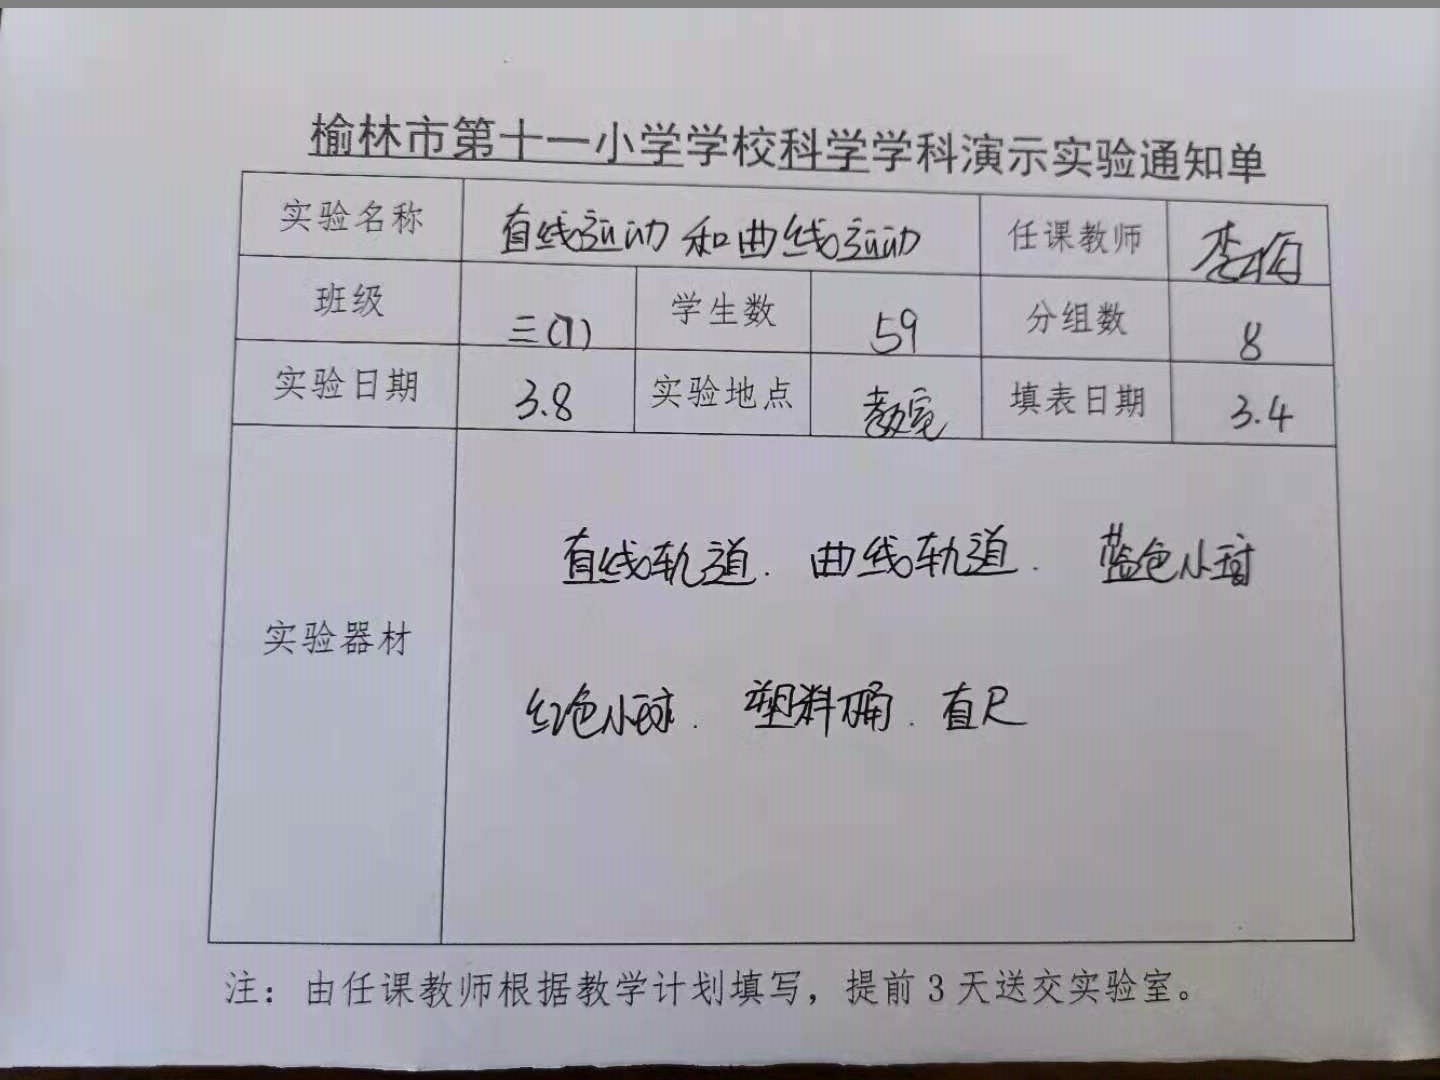 榆林市第十一小学学校科学学科演示实验通知单
实验名称 直线运动和曲线运动 任课教师 李
班级 三(7) 学生数 59 分组数 8
实验日期 3.8 实验地点 教室 填表日期 3.4
实验器材
直线轨道. 曲线轨道. 蓝色小球
红色小球. 塑料桶. 直尺
注：由任课教师根据教学计划填写，提前3天送交实验室。